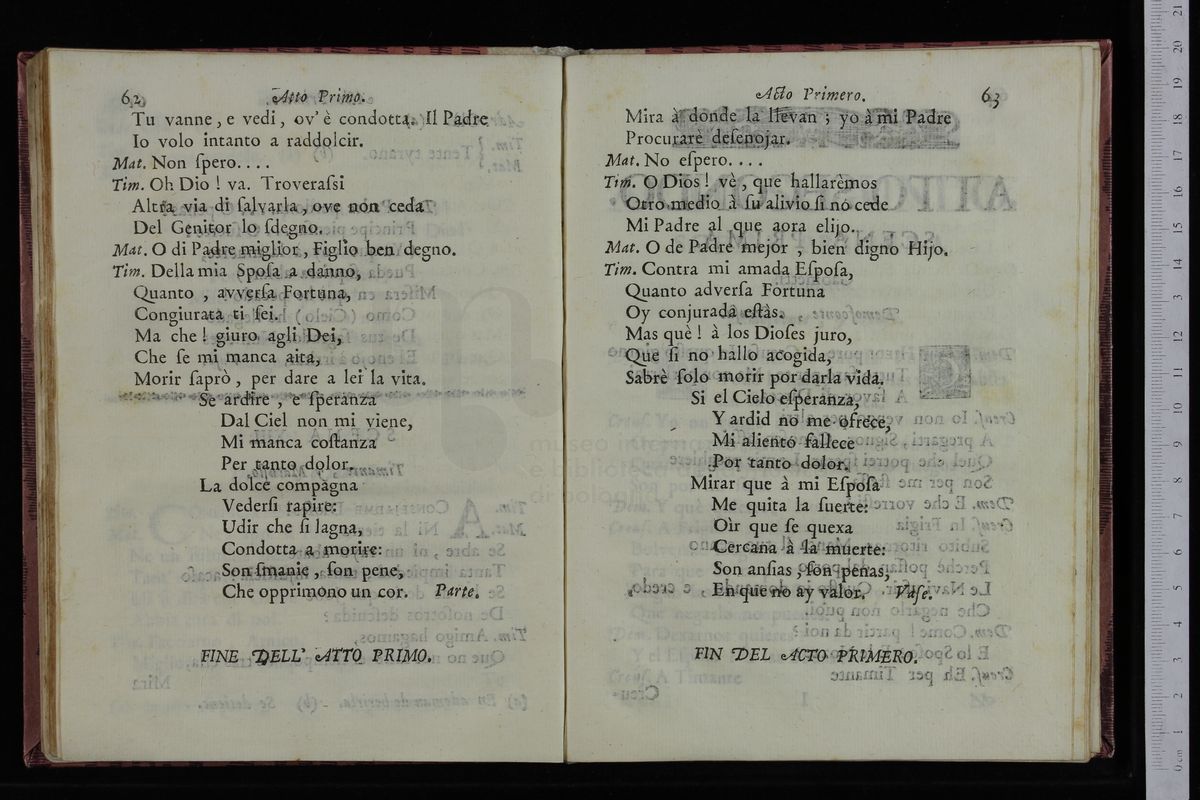 62 Atto Primo.
Tu vanne, e vedi, ov' è condotta. Il Padre
Io volo intanto a raddolcir.
Mat. Non ſpero....
Tim. Oh Dio! va. Troveraſsi
Altra via di ſalvarla, ove non ceda
Del Genitor lo ſdegno.
Mat. O di Padre miglior, Figlio ben degno.
Tim. Della mia Spoſa a danno,
Quanto, avverſa Fortuna,
Congiurata ti ſei.
Ma che! giuro agli Dei,
Che ſe mi manca aita,
Morir ſaprò, per dare a lei la vita.
Se ardire, e ſperanza
Dal Ciel non mi viene,
Mi manca coſtanza
Per tanto dolor.
La dolce compagna
Vederſi rapire:
Udir che ſi lagna,
Condotta a morire:
Son ſmanie, ſon pene,
Che opprimono un cor. Parte.
FINE DELL' ATTO PRIMO.
Acto Primero. 63
Mira à donde la llevan; yo à mi Padre
Procurarè deſenojar.
Mat. No eſpero....
Tim. O Dios! vè, que hallarèmos
Otro medio à ſu alivio ſi no cede
Mi Padre al que aora elijo.
Mat. O de Padre mejor, bien digno Hijo.
Tim. Contra mi amada Eſpoſa,
Quanto adverſa Fortuna
Oy conjurada eſtàs.
Mas què! à los Dioſes juro,
Que ſi no hallo acogida,
Sabrè ſolo morir por darla vida.
Si el Cielo eſperanza,
Y ardid no me ofrece,
Mi aliento fallece
Por tanto dolor.
Mirar que à mi Eſpoſa
Me quita la ſuerte:
Oìr que ſe quexa
Cercana à la muerte:
Son anſias, ſon penas,
En que no ay valor. Vaſe.
FIN DEL ACTO PRIMERO.